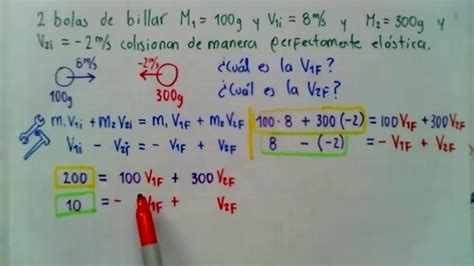 2 bolas de billar M₁ = 100g y V₁ᵢ = 8m/s y M₂ = 300g y
V₂ᵢ = -2m/s colisionan de manera perfectamente elástica.
8m/s -2m/s ¿Cuál es la V₁F?
100g 300g ¿Cuál es la V₂F?
m₁V₁ᵢ + m₂V₂ᵢ = m₁V₁F + m₂V₂F 100·8 + 300(-2) = 100V₁F + 300V₂F
V₁ᵢ - V₂ᵢ = - V₁F + V₂F 8 - (-2) = - V₁F + V₂F
200 = 100V₁F + 300V₂F
10 = - V₁F + V₂F